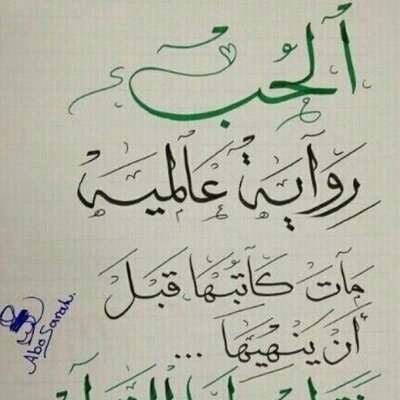 الحُب
رِوَايَة عَالَمية
مَات كَاتبُهَا قَبْل
أَن يَنْهيهَا ...
Abo Sarah.